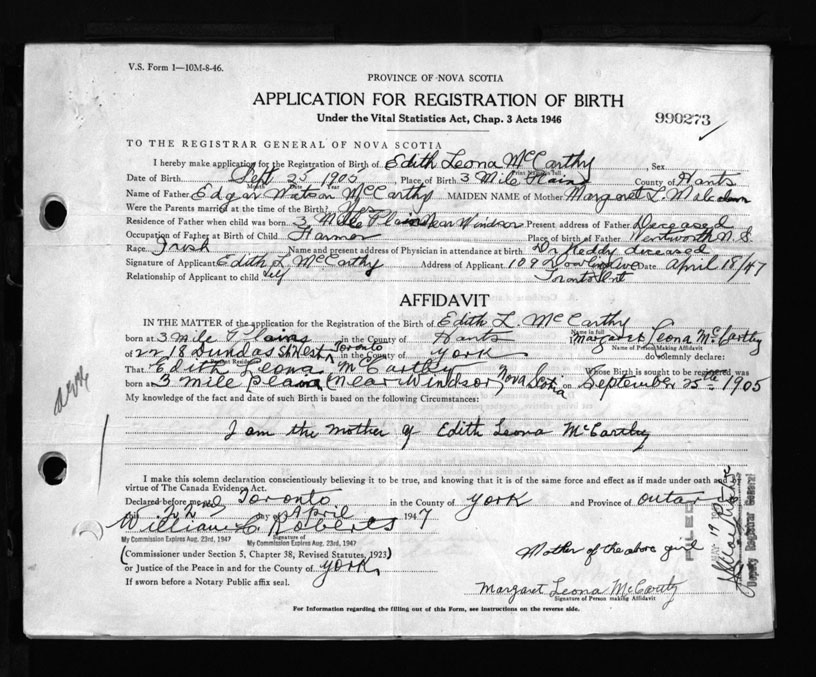 V.S. Form 1—10M-8-46.
PROVINCE OF NOVA SCOTIA
APPLICATION FOR REGISTRATION OF BIRTH
Under the Vital Statistics Act, Chap. 3 Acts 1946
990273
TO THE REGISTRAR GENERAL OF NOVA SCOTIA
I hereby make application for the Registration of Birth of Edith Leona McCarthy Sex
Print Name in full
Date of Birth Sept 25 1905 Place of Birth 3 Mile Plains County of Hants
Month Date Year
Name of Father Edgar Watson McCarthy MAIDEN NAME of Mother Margaret L.
Were the Parents married at the time of the Birth? Yes
Residence of Father when child was born 3 Mile Plains near Windsor Present address of Father Deceased
Occupation of Father at Birth of Child Farmer Place of birth of Father Wentworth N.S.
Race Irish Name and present address of Physician in attendance at birth Dr Reddy diceased
Signature of Applicant Edith L McCarthy Address of Applicant 109 Ave Date April 18/47
Relationship of Applicant to child self Toronto Ont
AFFIDAVIT
IN THE MATTER of the application for the Registration of the Birth of Edith L. McCarthy
Name in full
born at 3 mile Plains in the County of Hants I Margaret Leona McCarthy
Name of Person Making Affidavit
of 2218 Dundas St West Toronto in the County of York do solemnly declare:
That Edith Leona McCarthy Whose Birth is sought to be registered was
born at 3 mile plains (near Windsor) Nova Scotia on September 25th 1905
My knowledge of the fact and date of such Birth is based on the following Circumstances:
I am the mother of Edith Leona McCarthy
I make this solemn declaration conscientiously believing it to be true, and knowing that it is of the same force and effect as if made under oath and by
virtue of The Canada Evidence Act.
Declared before me at Toronto in the County of York and Province of Ontario
this day of April 1947
William C. Roberts
Signature of
My Commission Expires Aug. 23rd, 1947 My Commission Expires Aug. 23rd, 1947
(Commissioner under Section 5, Chapter 38, Revised Statutes, 1923)
or Justice of the Peace in and for the County of York
If sworn before a Notary Public affix seal.
Mother of the above girl
Margaret Leona McCarthy
Signature of Person making Affidavit
For Information regarding the filling out of this Form, see instructions on the reverse side.
FILED
Deputy Registrar General